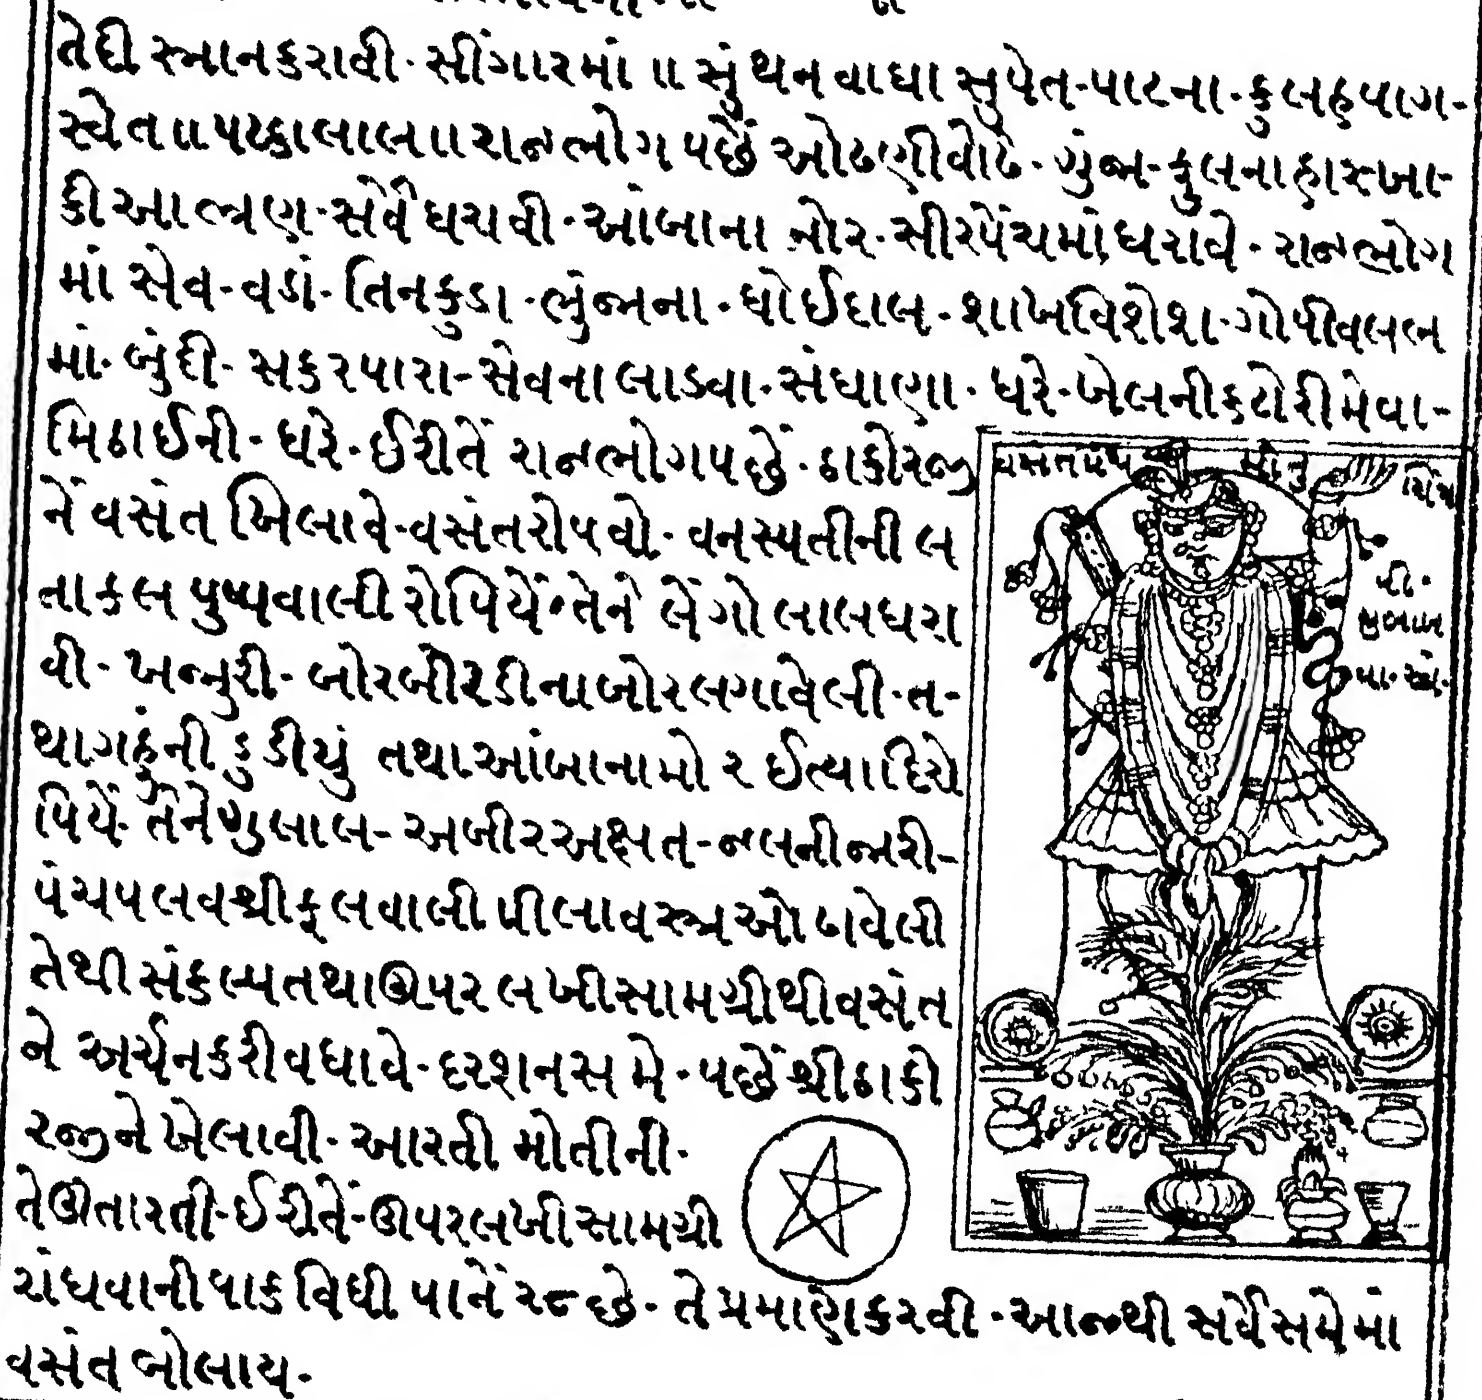 તેદી સ્નાન કરાવી. સીંગારમાં ॥ સુંથન વાઘા સુપેત-પાટના. કુલહપાગ-
સ્વેત ॥ પટકાલાલ ॥ રાજભોગ પછેં ઓઢણીવોઢે. ગુંજા-ફુલના હાર-ખા-
કી આભ્રણ. સર્વે ધરાવી. આંબાના મોર. સીરપેંચમાં ધરાવે. રાજભોગ
માં સેવ-વડાં. તિનકુડા. ભુંજાના. ધોઈદાલ. શાખવિશેશ. ગોપીવલભ
માં. બુંદી. સકરપારા-સેવના લાડવા. સંધાણા. ધરે-ખેલની કટોરી મેવા-
મિઠાઈની. ધરે. ઈરીતેં રાજભોગ પછેં. ઠાકોરજી
નેં વસંત ખિલાવે-વસંત રોપવો. વનસ્પતીની લ
તા ફલ પુષ્પવાલી રોપિયેં. તેને લેંગો લાલ ધરા
વી. ખજુરી. બોરબીરડીના બોર લગાવેલી. ત-
થા ગહુંની ડુડીયું તથા આંબાના મોર ઈત્યાદિ રો
પિયેં. તેને ગુલાલ-અબીર અક્ષત-જલની જારી-
પંચપલવ શ્રીફલવાલી પીલા વસ્ત્ર ઓઢાવેલી
તેથી સંકલ્પ તથા ઊપર લખી સામગ્રીથી વસંત
ને અર્ચન કરી વધાવે. દરશન સમે. પછેં શ્રીઠાકો
રજીને ખેલાવી. આરતી મોતીની.
તે ઊતારતી-ઈ રીતેં-ઊપર લખી સામગ્રી
રાંધવાની પાક વિધી પાનેં ૨૮ છે. તે પ્રમાણે કરવી. આજથી સર્વે સમેમાં
વસંત બોલાય.